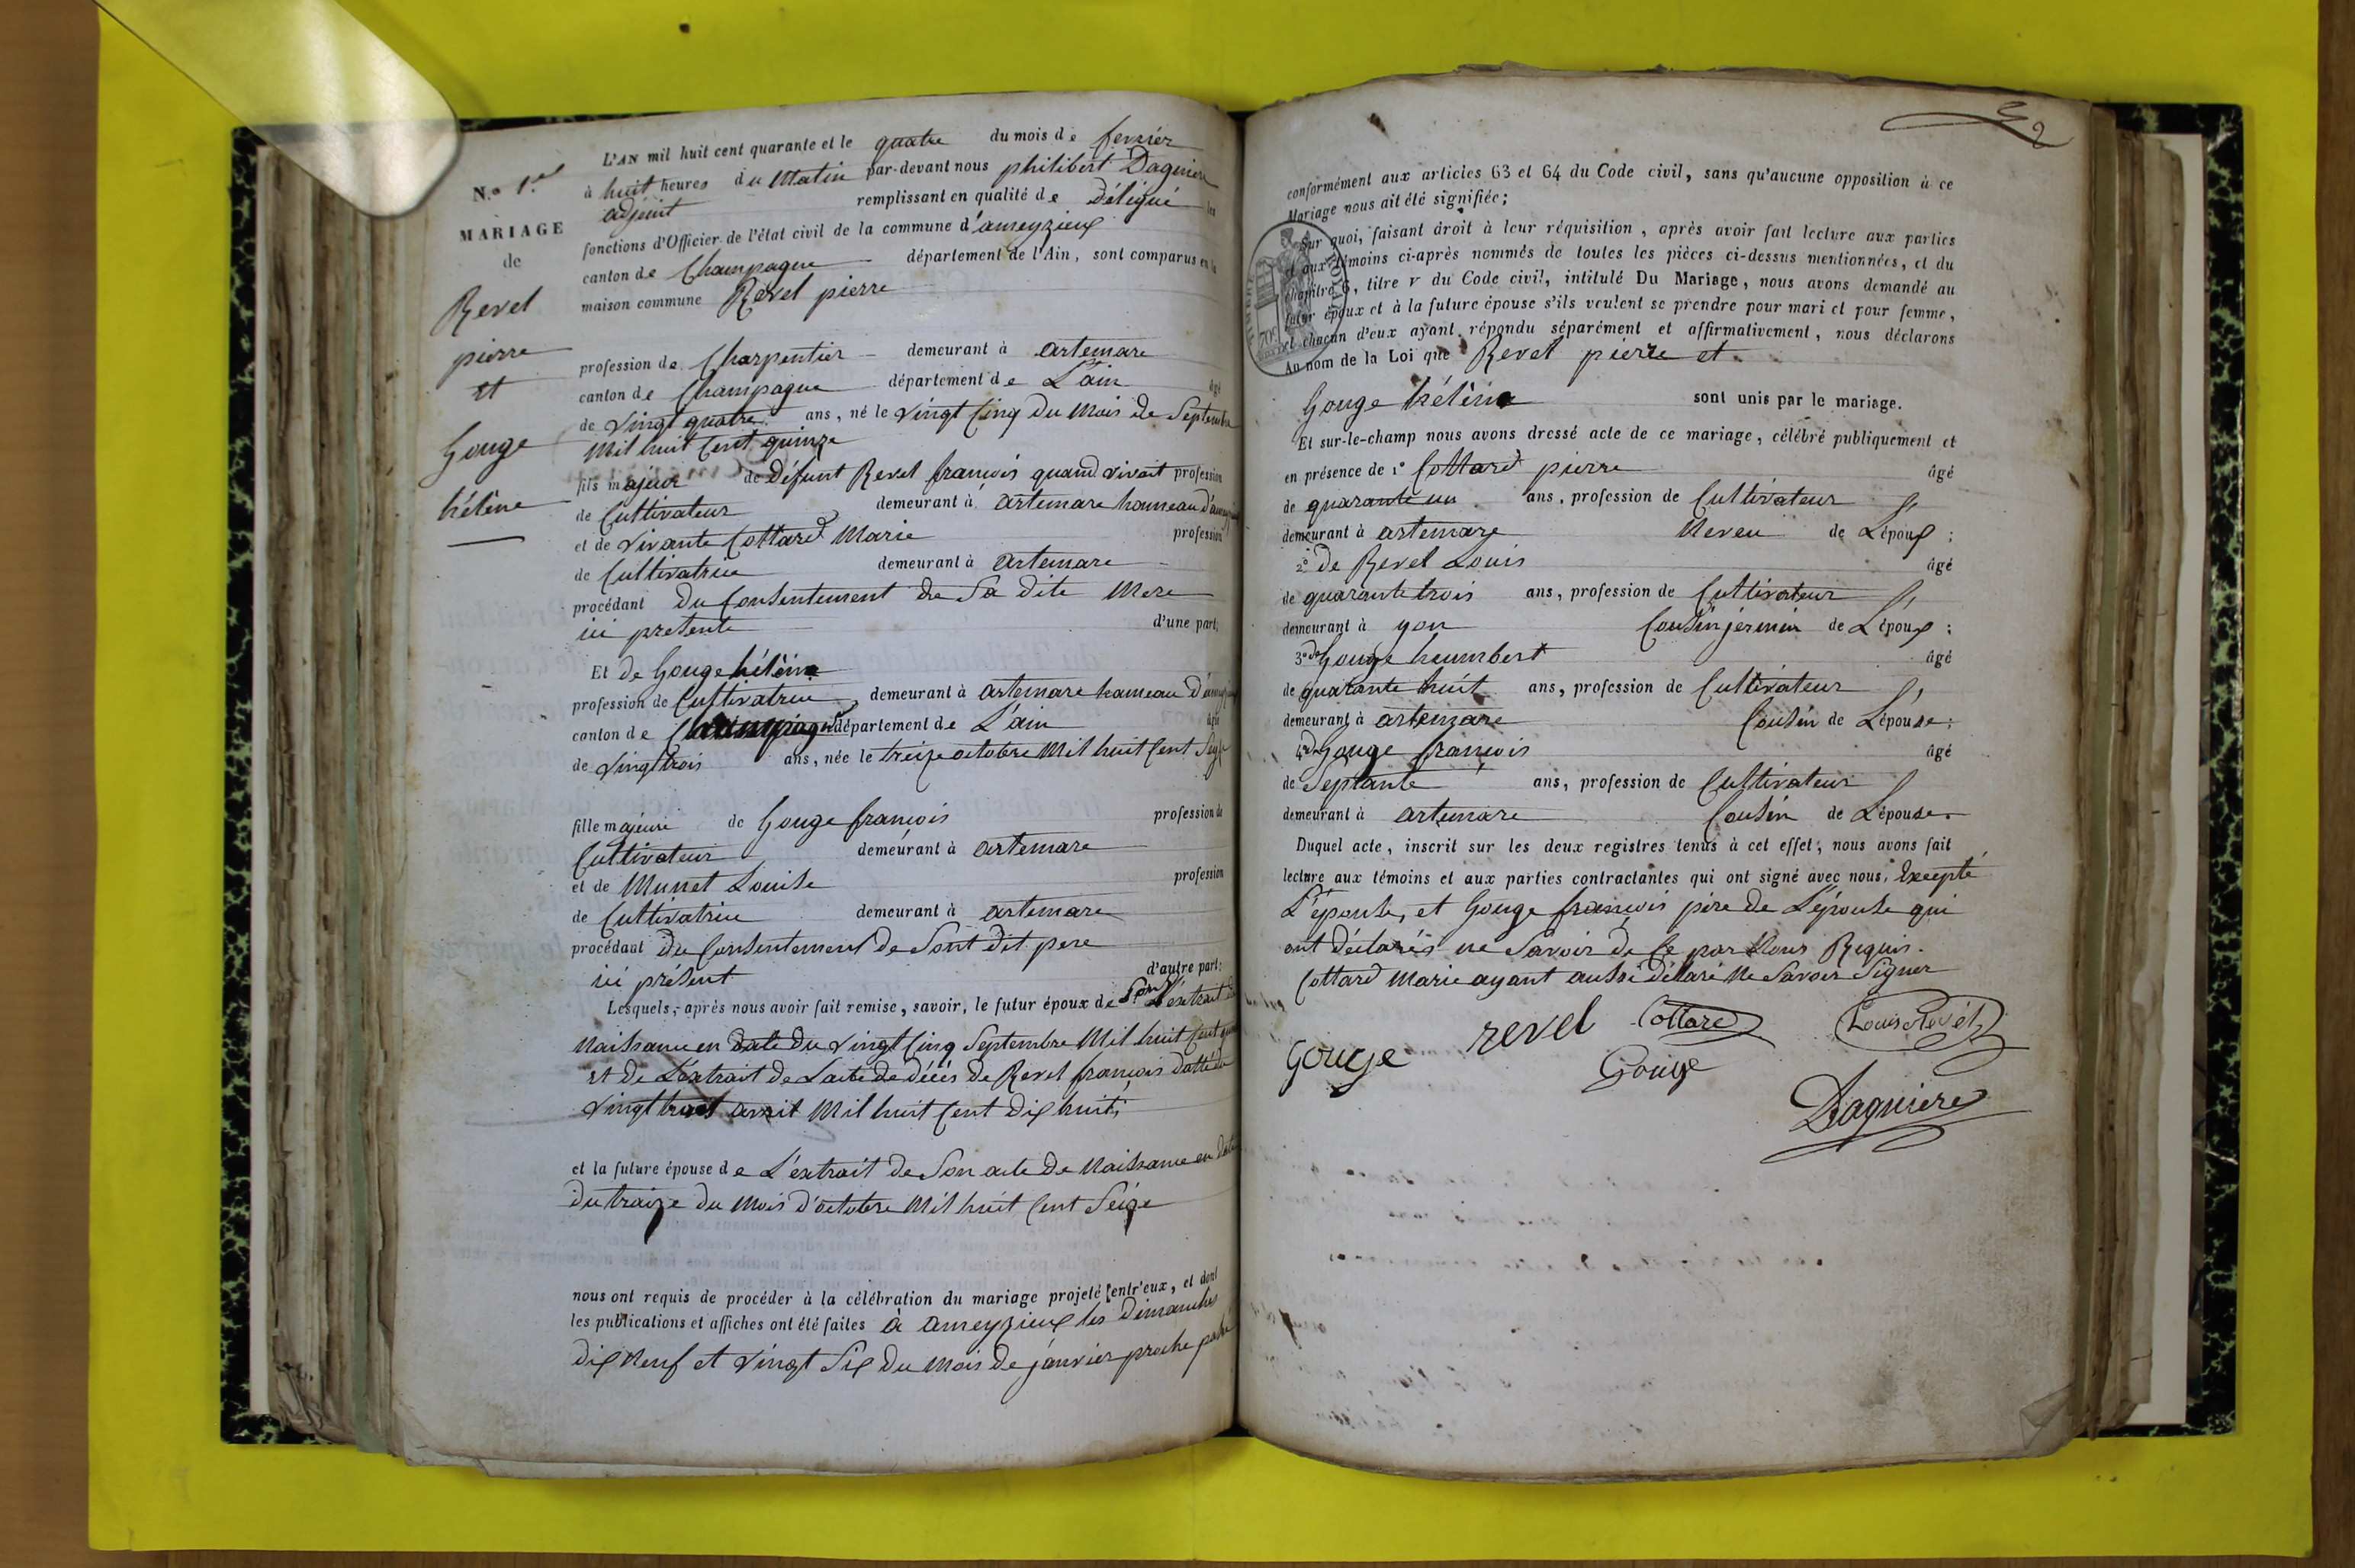 N.o 1.er
MARIAGE
de
Revel
pierre
et
Gouge
hélène
L'AN mil huit cent quarante et le quatre du mois de fevrier
à huit heures du Matin par-devant nous philibert Dagniere
adjoint remplissant en qualité de Délégué les
fonctions d'Officier de l'état civil de la commune d'ameyzieux
canton de Champagne département de l'Ain, sont comparus en la
maison commune Revel pierre
profession de Charpentier demeurant à artemare
canton de Champagne département de L'ain âgé
de vingt quatre ans, né le vingt cinq du Mois de Septembre
Mil huit Cent quinze
fils majeur de Défunt Revel francois quand vivait profession
de Cultivateur demeurant à artemare hameau d'ameyzieux
et de vivante Cottard Marie profession
de Cultivatrice demeurant à artemare
procédant du Consentement de Sa dite Mere
ici presente d'une part;
Et de Gouge hélène
profession de Cultivatrice demeurant à artemare hameau d'ameyzieux
canton de Champagne département de L'ain âgée
de vingt trois ans, née le treize octobre Mil huit Cent Seize
fille majeure de Gouge francois profession de
Cultivateur demeurant à artemare
et de Munet Louise profession
de Cultivatrice demeurant à artemare
procédant du Consentement de Sont dit pere
ici présent d'autre part:
Lesquels, après nous avoir fait remise, savoir, le futur époux de L'extrait de
Naissance en date du vingt Cinq Septembre Mil huit Cent quinze
et de L'extrait de Lacte de décés de Revel francois datté du
vingt huit avril Mil huit Cent Dix huit;
et la future épouse de L'extrait de Son acte de Naissance en date
du traize du Mois d'octobre Mil huit Cent Seize
nous ont requis de procéder à la célébration du mariage projeté entr'eux, et dont
les publications et affiches ont été faites à ameyzieux les Dimanches
Dix Neuf et vingt Six du Mois de janvier proche passé
conformément aux articles 63 et 64 du Code civil, sans qu'aucune opposition à ce
Mariage nous ait été signifiée;
Sur quoi, faisant droit à leur réquisition, après avoir fait lecture aux parties
et aux témoins ci-après nommés de toutes les pièces ci-dessus mentionnées, et du
chapitre 6, titre V du Code civil, intitulé Du Mariage, nous avons demandé au
futur époux et à la future épouse s'ils veulent se prendre pour mari et pour femme,
et chacun d'eux ayant répondu séparément et affirmativement, nous déclarons
Au nom de la Loi que Revel pierre et
Gouge hélène sont unis par le mariage.
Et sur-le-champ nous avons dressé acte de ce mariage, célébré publiquement et
en présence de 1° Cottard pierre âgé
de quarante un ans, profession de Cultivateur
demeurant à artemare Neveu de L'époux;
2° de Revel Louis âgé
de quarante trois ans, profession de Cultivateur
demeurant à yon Cousin jermin de L'époux;
3° de Gouge heumbert âgé
de quarante huit ans, profession de Cultivateur
demeurant à artemare Cousin de L'épouse;
4° de Gouge francois âgé
de Septante ans, profession de Cultivateur
demeurant à artemare Cousin de L'épouse.
Duquel acte, inscrit sur les deux registres tenus à cet effet, nous avons fait
lecture aux témoins et aux parties contractantes qui ont signé avec nous, Excepté
L'épouse, et Gouge francois père de L'épouse qui
ont déclarés ne Savoir de Ce par Nous Requis.
Cottard Marie ayant aussi Déclaré Ne Savoir Signer
Gouge revel Cottard Louis Revel
Gouge
Dagniere